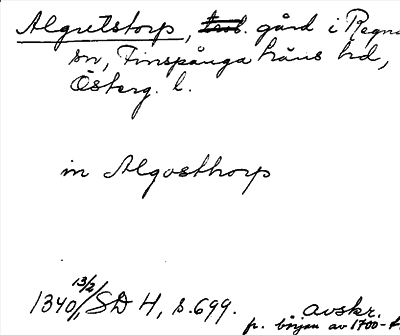 Algutstorp, gård i Regna
sn, Finspånga läns hd,
Österg. l.
in Algosthorp
1340 13/2, SD 4, s. 699. avskr.
fr. början av 1700-t.